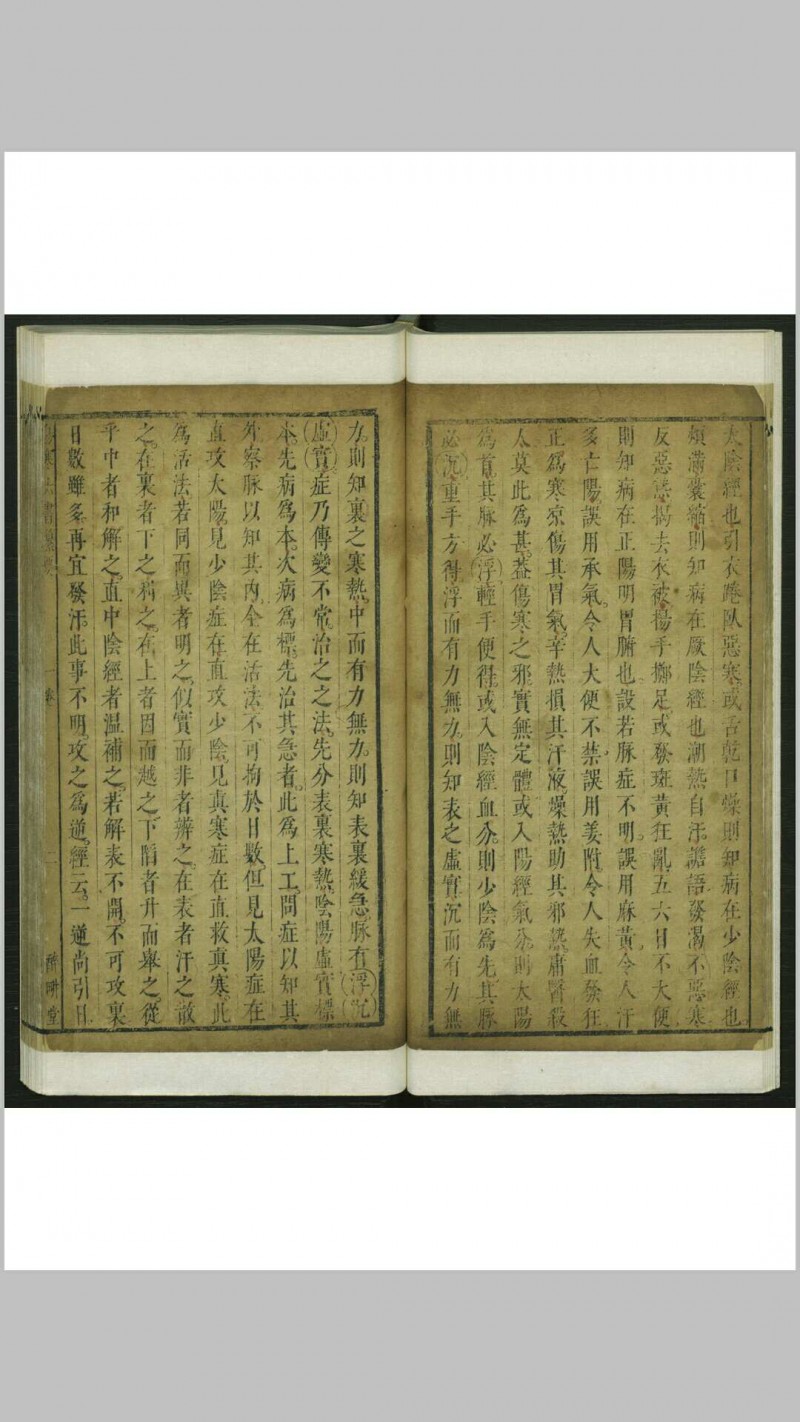 太陰經也引衣踡臥惡寒或舌乾口燥則知病在少陰經也
煩滿囊縮則知病在厥陰經也潮熱自汗譫語發渴不惡寒
反惡熱揭去衣被揚手擲足或發斑黃狂亂五六日不大便
則知病在正陽明胃腑也設若脉症不明誤用麻黃令人汗
多亡陽誤用承氣令人大便不禁誤用姜附令人失血發狂
正為寒凉傷其胃氣辛熱損其汗液燥熱助其邪熱庸醫殺
人莫此為甚葢傷寒之邪實無定體或入陽經氣分則太陽
為首其脉必浮輕手便得或入陰經血分則少陰為先其脉
必沉重手方得浮而有力無力則知表之虛實沉而有力無
力則知裏之寒熱中而有力無力則知表裏緩急脉有浮沉
虛實症乃傳變不常治之之法先分表裏寒熱陰陽虛實標
本先病為本次病為標先治其急者此為上工問症以知其
外察脉以知其内全在活法不可拘於日數但見太陽症在
直攻太陽見少陰症在直攻少陰見真寒症在直救真寒此
為活法若同而異者明之似實而非者辨之在表者汗之散
之在裏者下之利之在上者因而越之下陷者升而舉之從
乎中者和解之直中陰經者温補之若解表不開不可攻裏
日數雖多再宜發汗此事不明攻之為逆經云一逆尚引日
一卷
二